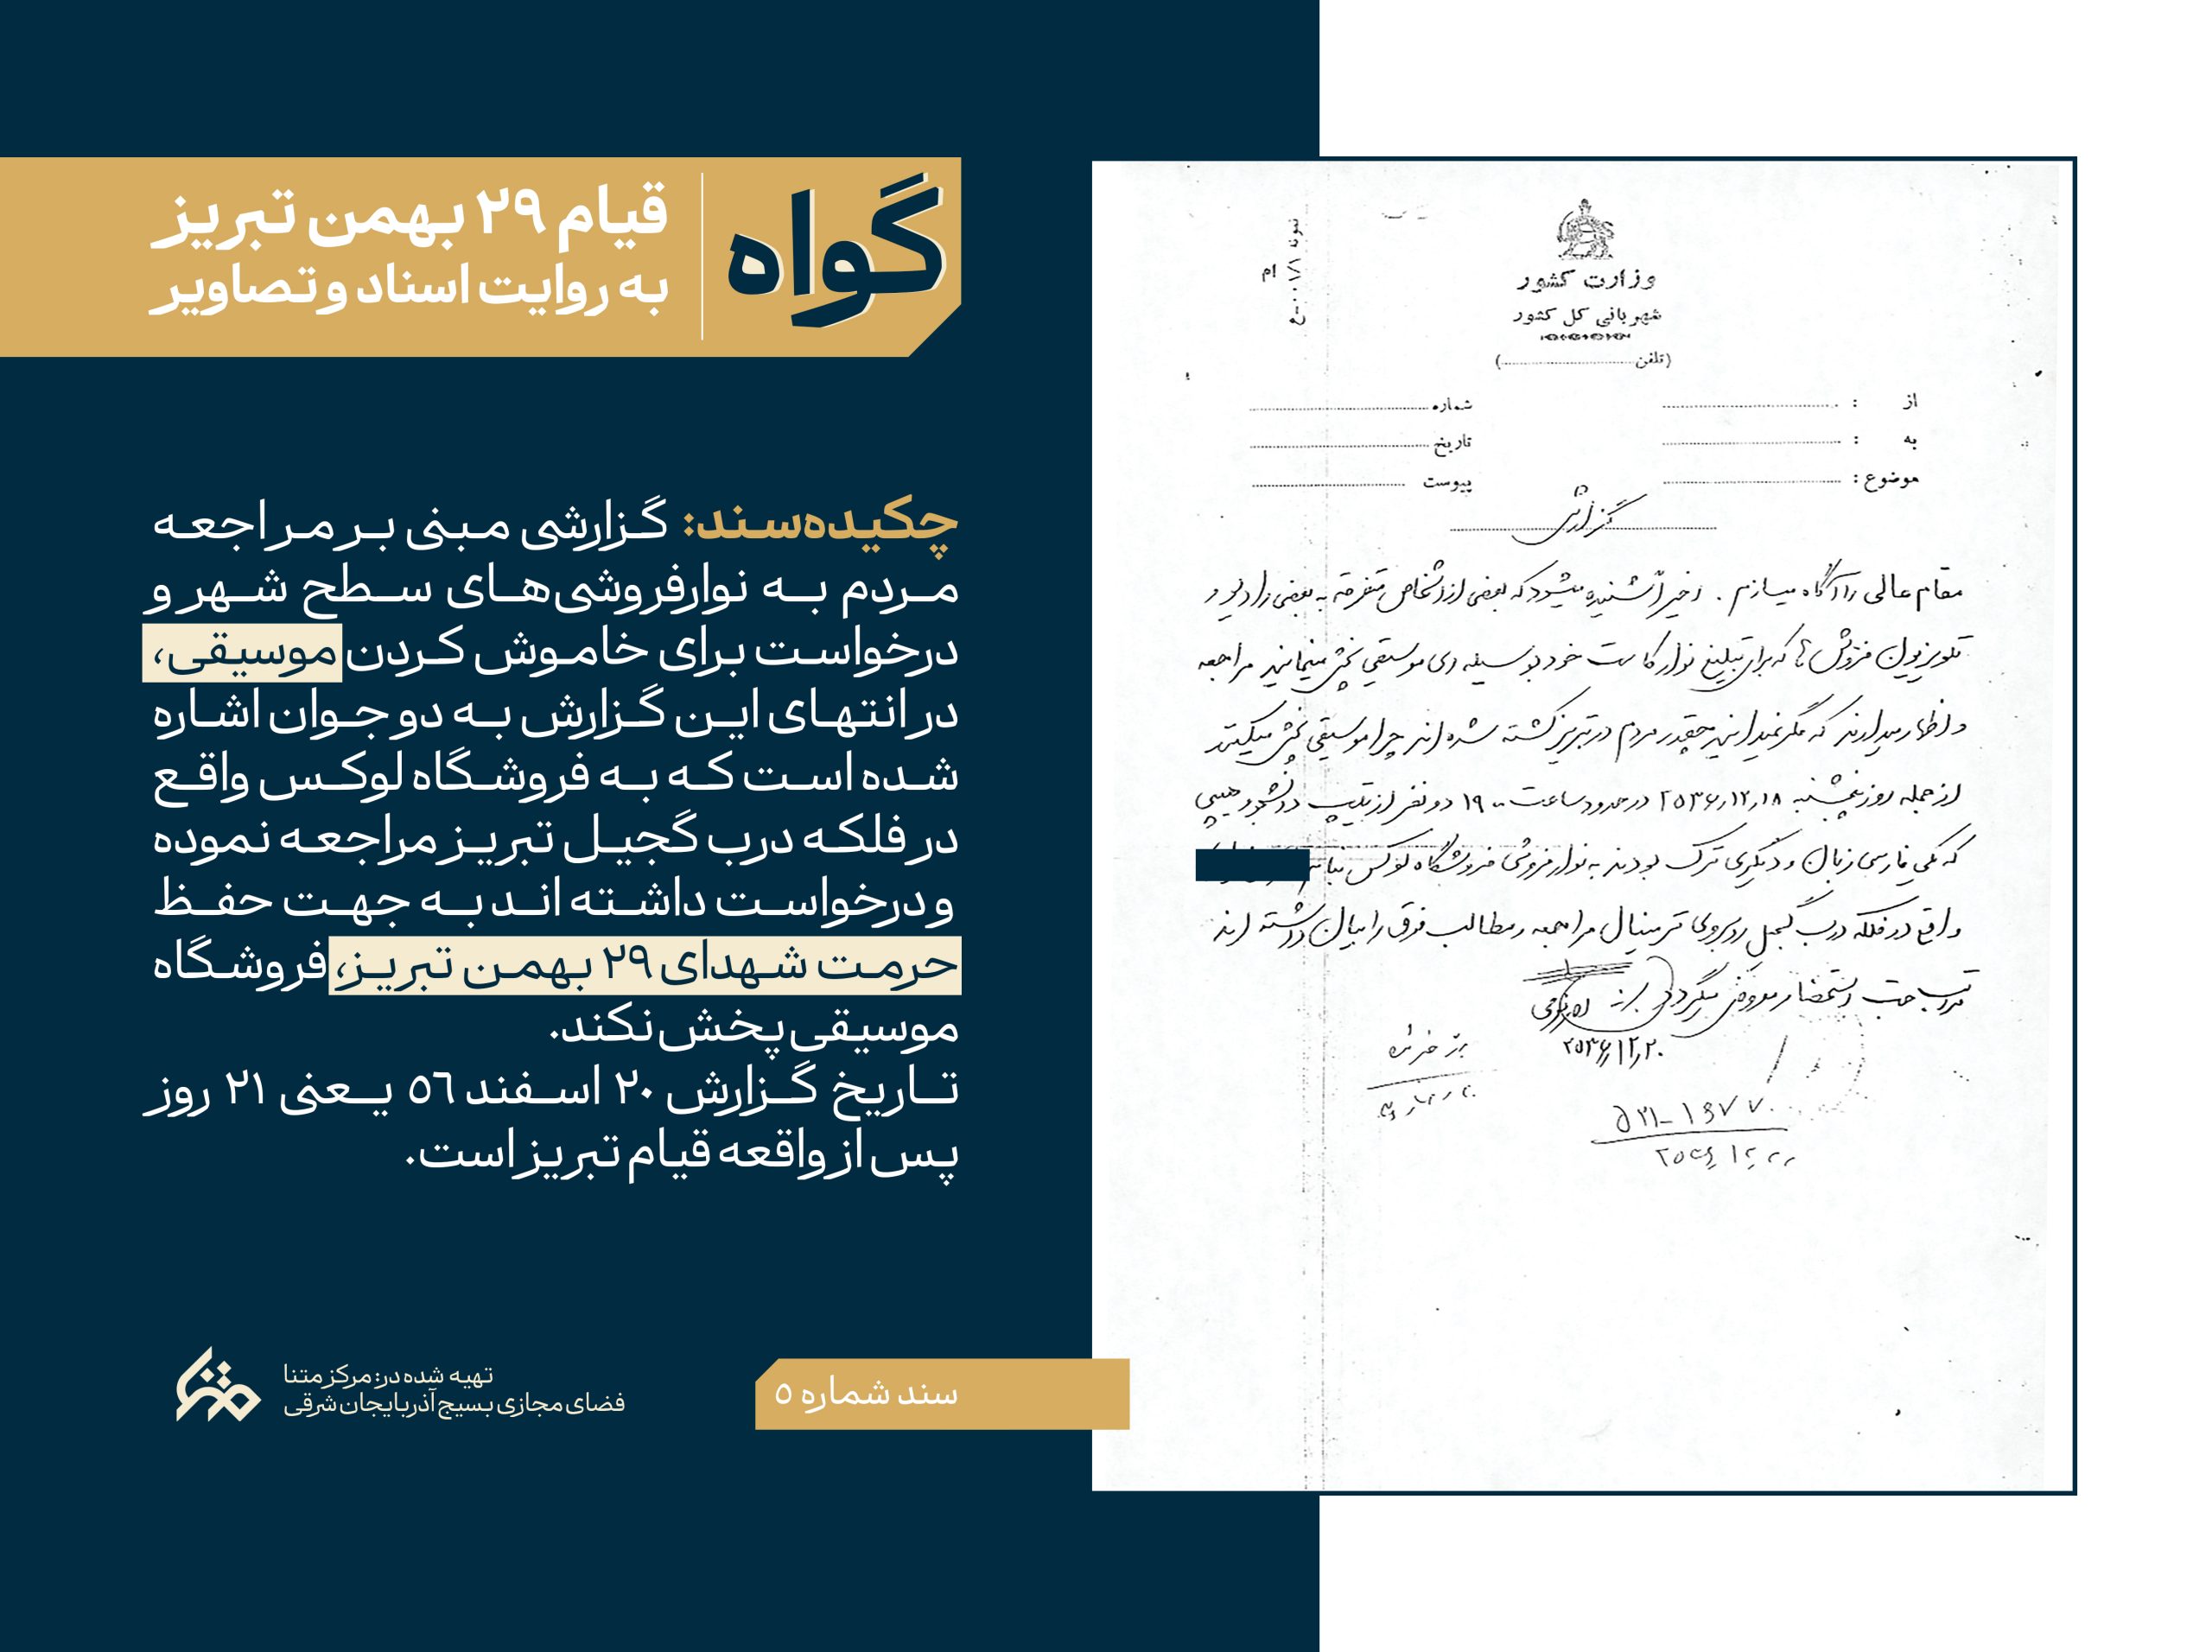 گواه
قیام ۲۹ بهمن تبریز
به روایت اسناد و تصاویر
چکیده‌سند: گزارشی مبنی بر مراجعه
مردم به نوارفروشی‌های سطح شهر و
درخواست برای خاموش کردن موسیقی،
در انتهای این گزارش به دو جوان اشاره
شده است که به فروشگاه لوکس واقع
در فلکه درب گجیل تبریز مراجعه نموده
و درخواست داشته اند به جهت حفظ
حرمت شهدای ۲۹ بهمن تبریز، فروشگاه
موسیقی پخش نکند.
تاریخ گزارش ۲۰ اسفند ۵٦ یعنی ۲۱ روز
پس از واقعه قیام تبریز است.
سند شماره ۵
تهیه شده در: مرکز متنا
فضای مجازی بسیج آذربایجان شرقی
متنا
وزارت کشور
شهربانی کل کشور
(تلفن)
از :
به :
موضوع :
شماره
تاریخ
پیوست
گزارش
مقام عالی را آگاه میسازم . اخیراً شنیده میشود که بعضی از اشخاص متفرقه به بعضی رادیو و
تلویزیون فروش ها که برای تبلیغ نوار کاست خود بوسیله ای موسیقی پخش مینمایند مراجعه
و اظهار میدارند که مگر نمیدانید چقدر مردم در تبریز کشته شده اند چرا موسیقی پخش میکنید
از جمله روز پنجشنبه ۲۵۳۶٫۱۲٫۱۸ در حدود ساعت ۱۹۰۰ دو نفر از تیپ دانشجو و هیپی
که یکی فارسی زبان و دیگری ترک بودند به نوار فروشی فروشگاه لوکس بنام
واقع در فلکه درب گجیل روبروی ترمینال مراجعه و مطالب فوق را بیان داشته اند
مراتب جهت استحضار معروض میگردد
۲۵۳۶٫۱۲٫۲۰